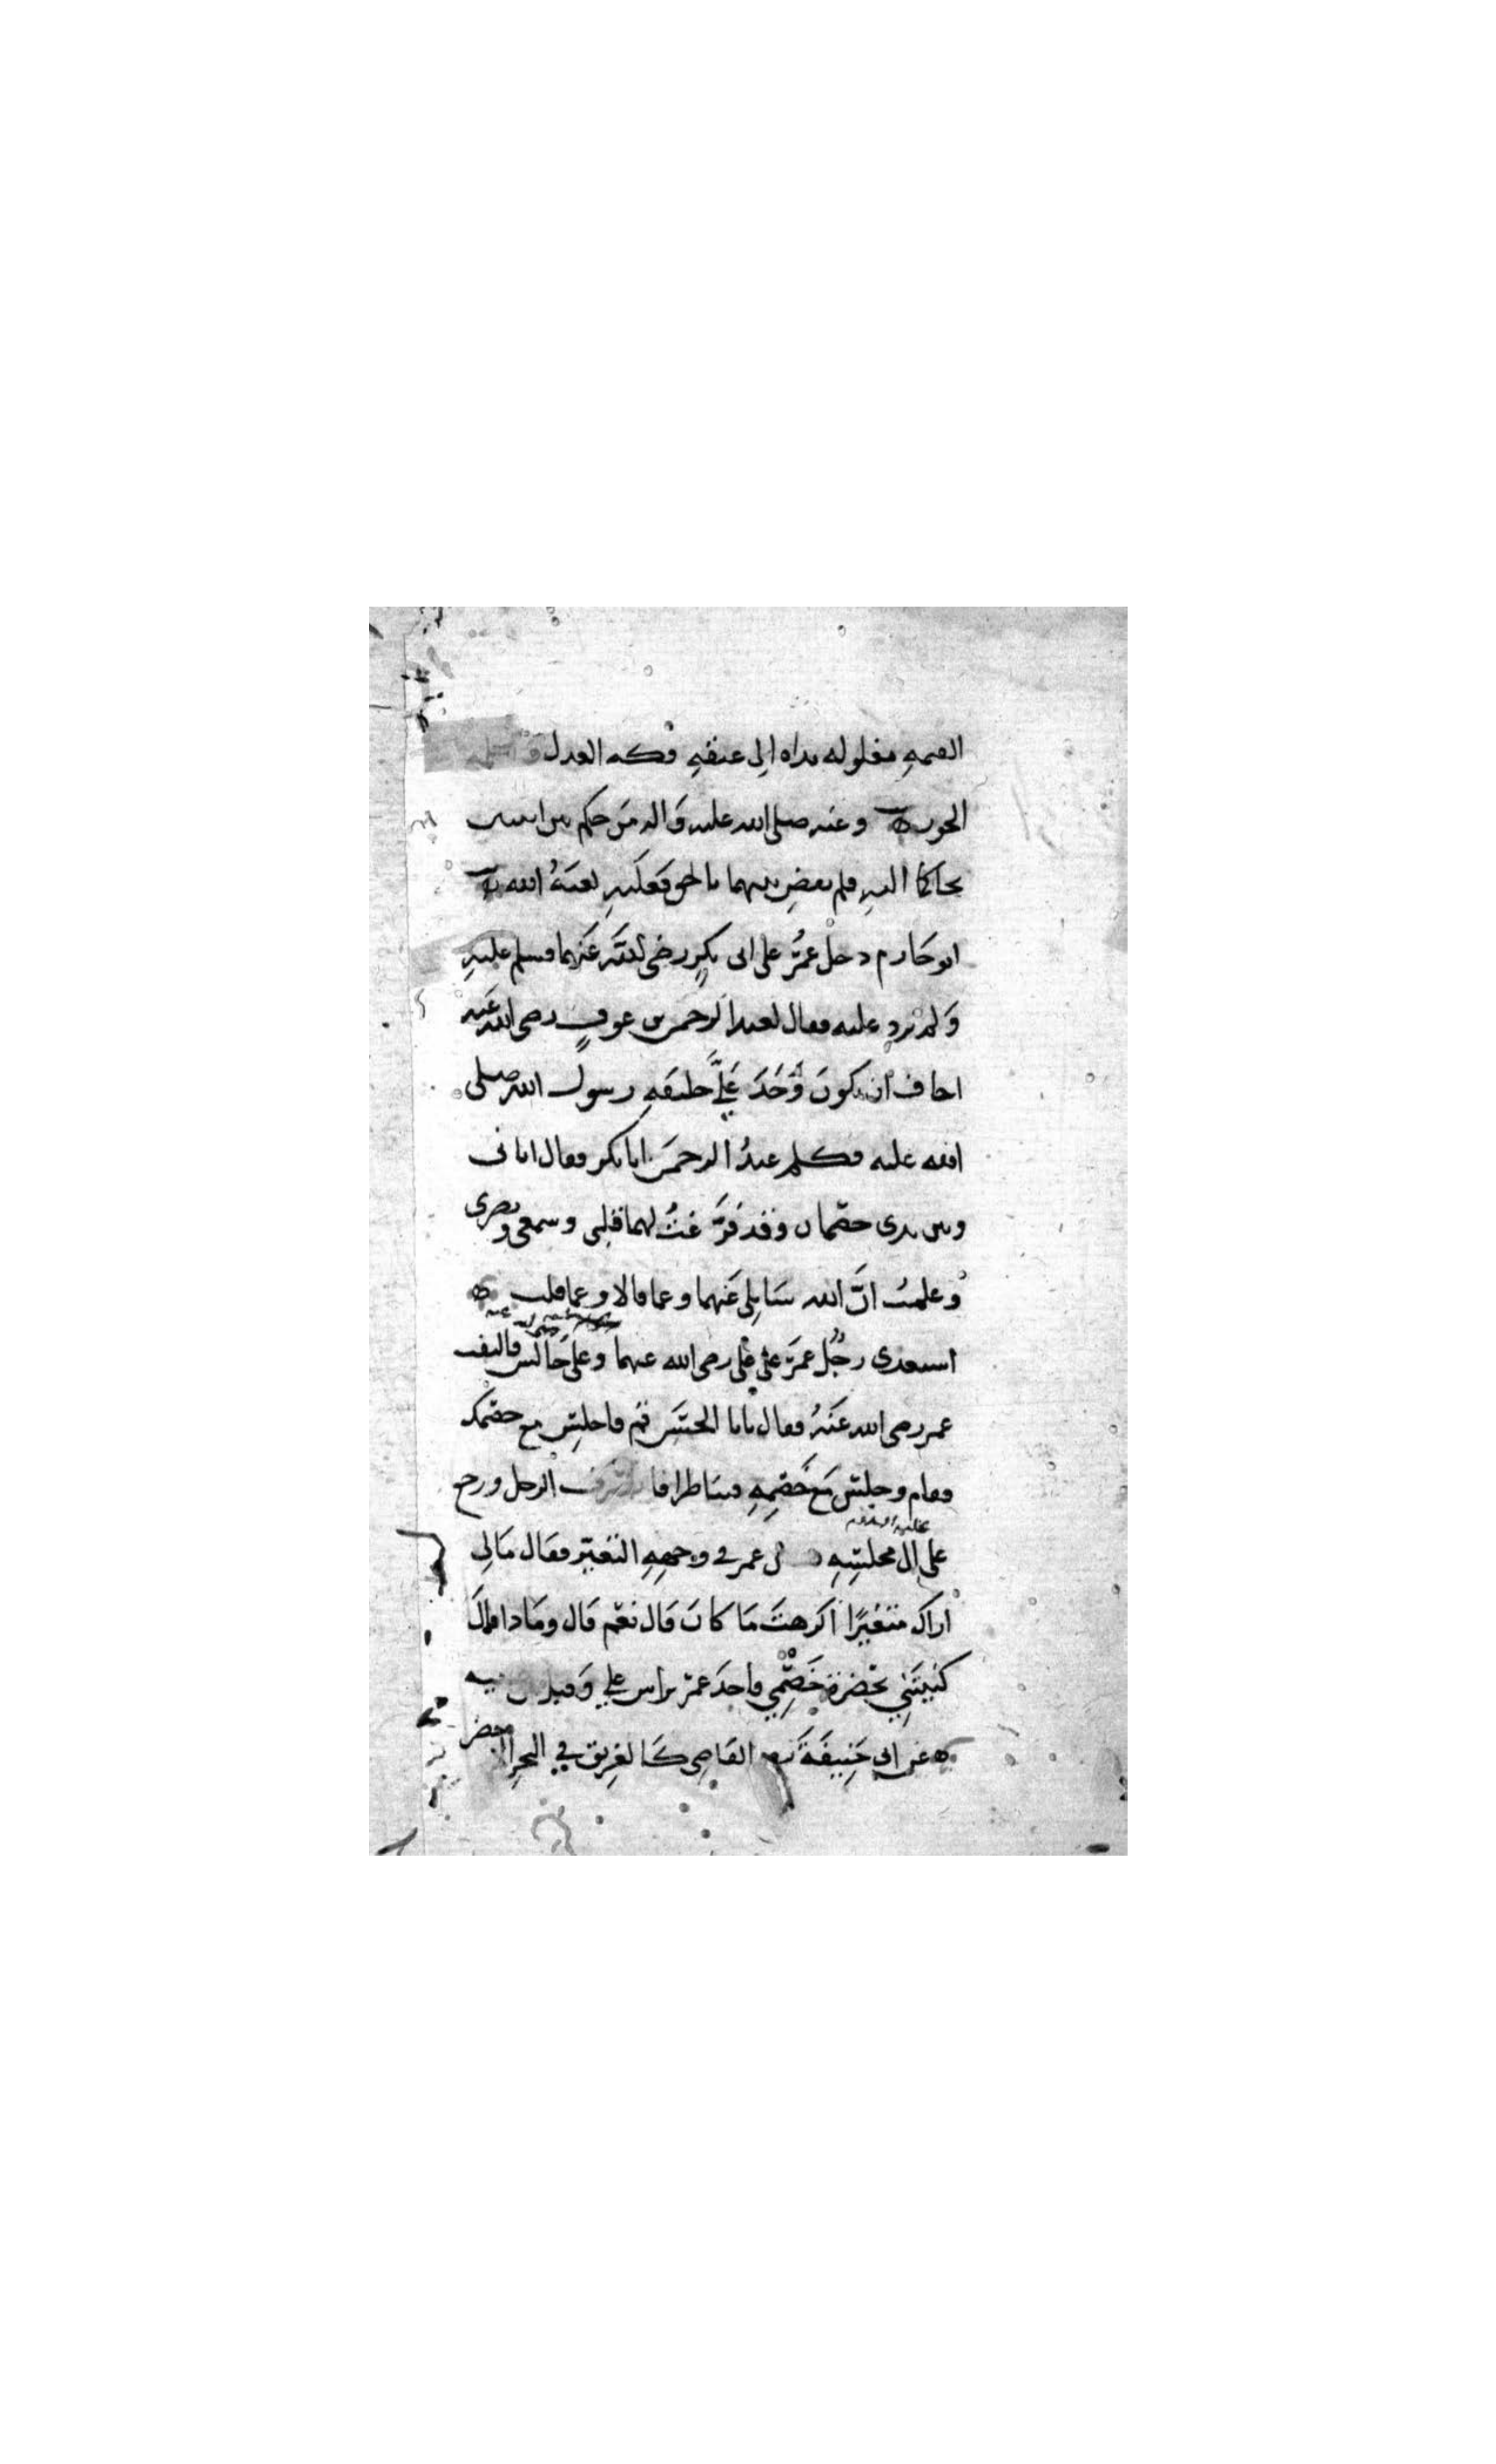 القيمة مغلولة يداه إلى عنقه فكه العدل
الجور وعنه صلى الله عليه وآله من حكم بين اثنين
تحاكما اليه فلم يقض بينهما بالحق فعليه لعنة الله
ابو حازم دخل عمر على ابي بكر رضي الله عنهما فسلم عليه
ولم يرد عليه فقال لعبد الرحمن بن عوف رضي الله عنه
اخاف ان يكون وجد علي خليفة رسول الله صلى
الله عليه فكلم عبد الرحمن ابا بكر فقال اتاني
وبين يدي خصمان وقد فرغت لهما قلبي وسمعي وبصري
وعلمت ان الله سايلي عنهما وعما قالا وعما قلت
استعدى رجل عمر على علي رضي الله عنهما وعلي جالس فالتفت
عمر رضي الله عنه فقال يابا الحسن قم فاجلس مع خصمك
فقام وجلس مع خصمه فتناظرا فانصرف الرجل ورجع
علي الى مجلسه عمر في وجهه التغير فقال مالي
اراك متغيرا اكرهت ما كان قال نعم قال وما ذاك
كنيتني بحضرة خصمي فاخذ عمر براس علي وقبل بين
عن ابي حنيفة القاضي كالغريق في البحر الاخضر